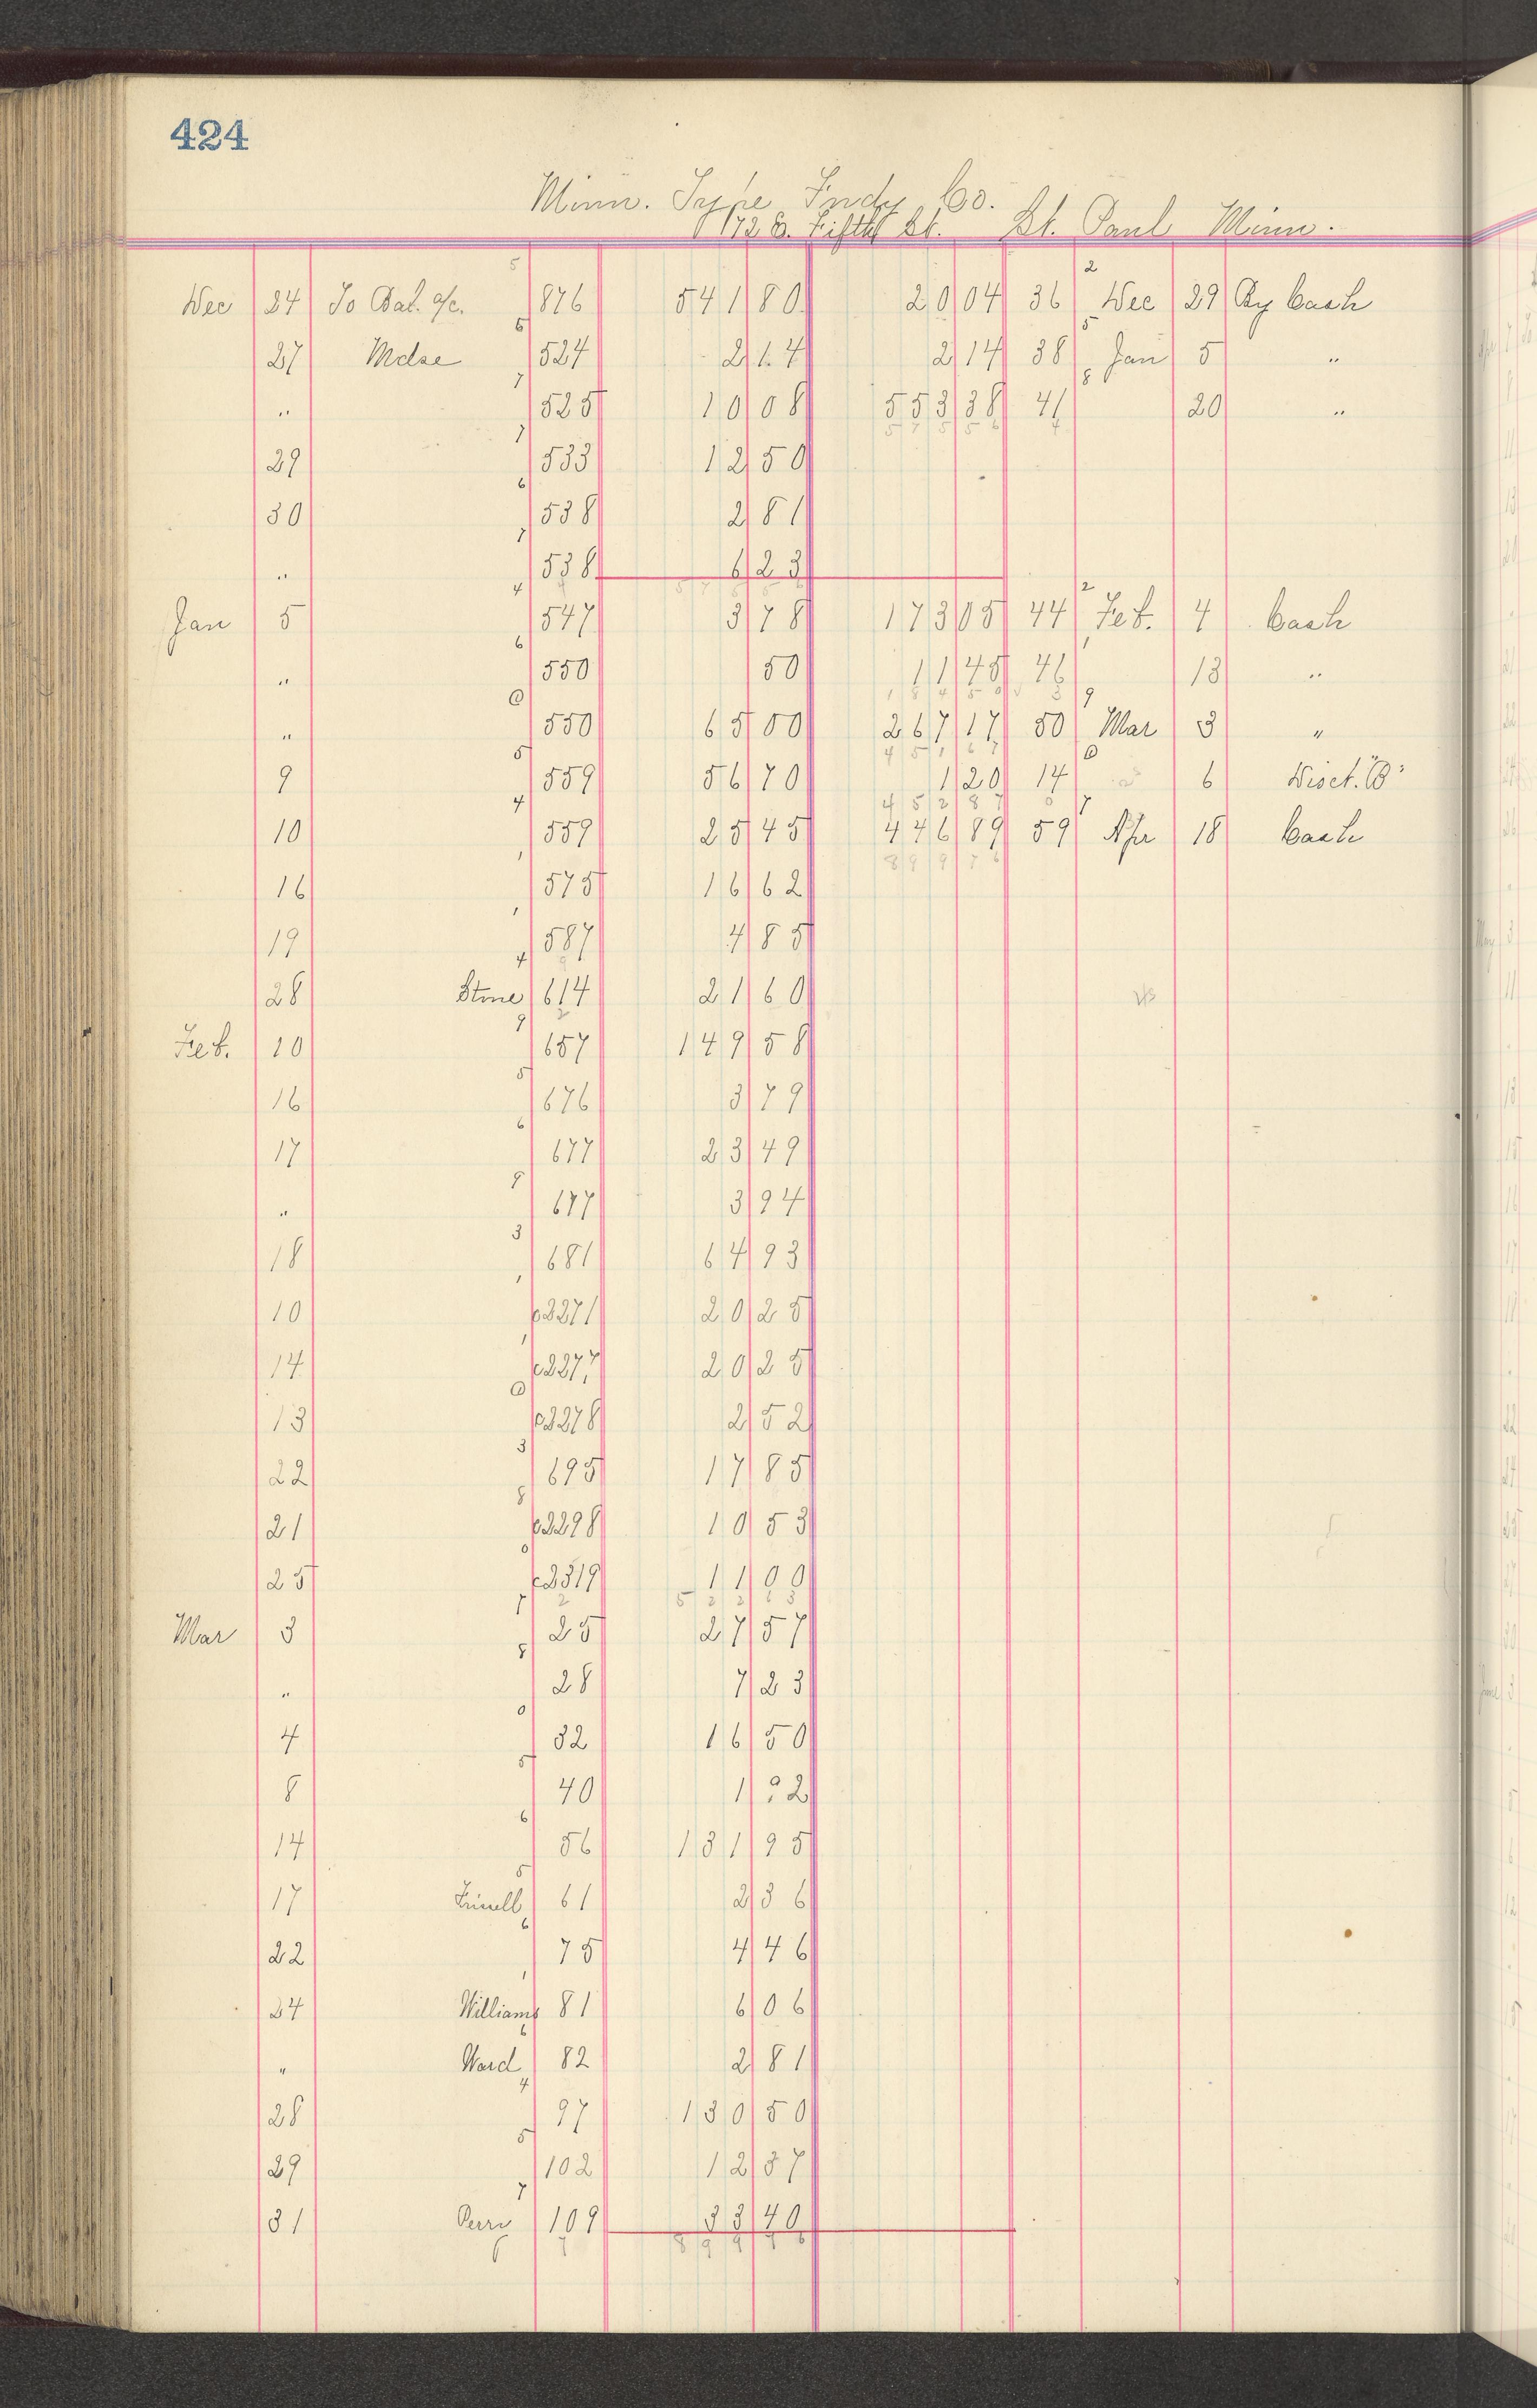 424
Minn. Type Fndy Co.
172 E. Fifth St. St. Paul Minn.
Dec 24 To Bal. a/c. 876 541 80 20 04 36 Dec 29 By Cash
27 Mdse 524 2 14 2 14 38 Jan 5 "
" 525 10 08 553 38 41 20 "
29 533 12 50
30 538 2 81
" 538 6 23
Jan 5 547 3 78 173 05 44 Feb. 4 Cash
" 550 50 11 45 46 13 "
" 550 65 00 267 17 50 Mar 3 "
9 559 56 70 1 20 14 6 Disct. "B"
10 559 25 45 446 89 59 Apr 18 Cash
16 575 16 62
19 587 4 85
28 Stone 614 21 60
Feb. 10 657 149 58
16 676 3 79
17 677 23 49
" 677 3 94
18 681 64 93
10 c2271 20 25
14 c2277 20 25
13 c2278 2 52
22 695 17 85
21 c2298 10 53
25 c2319 11 00
Mar 3 25 27 57
" 28 7 23
4 32 16 50
8 40 1 92
14 56 131 95
17 61 2 36
22 75 4 46
24 Williams 81 6 06
" Ward 82 2 81
28 97 130 50
29 102 12 37
31 Perry 109 33 40